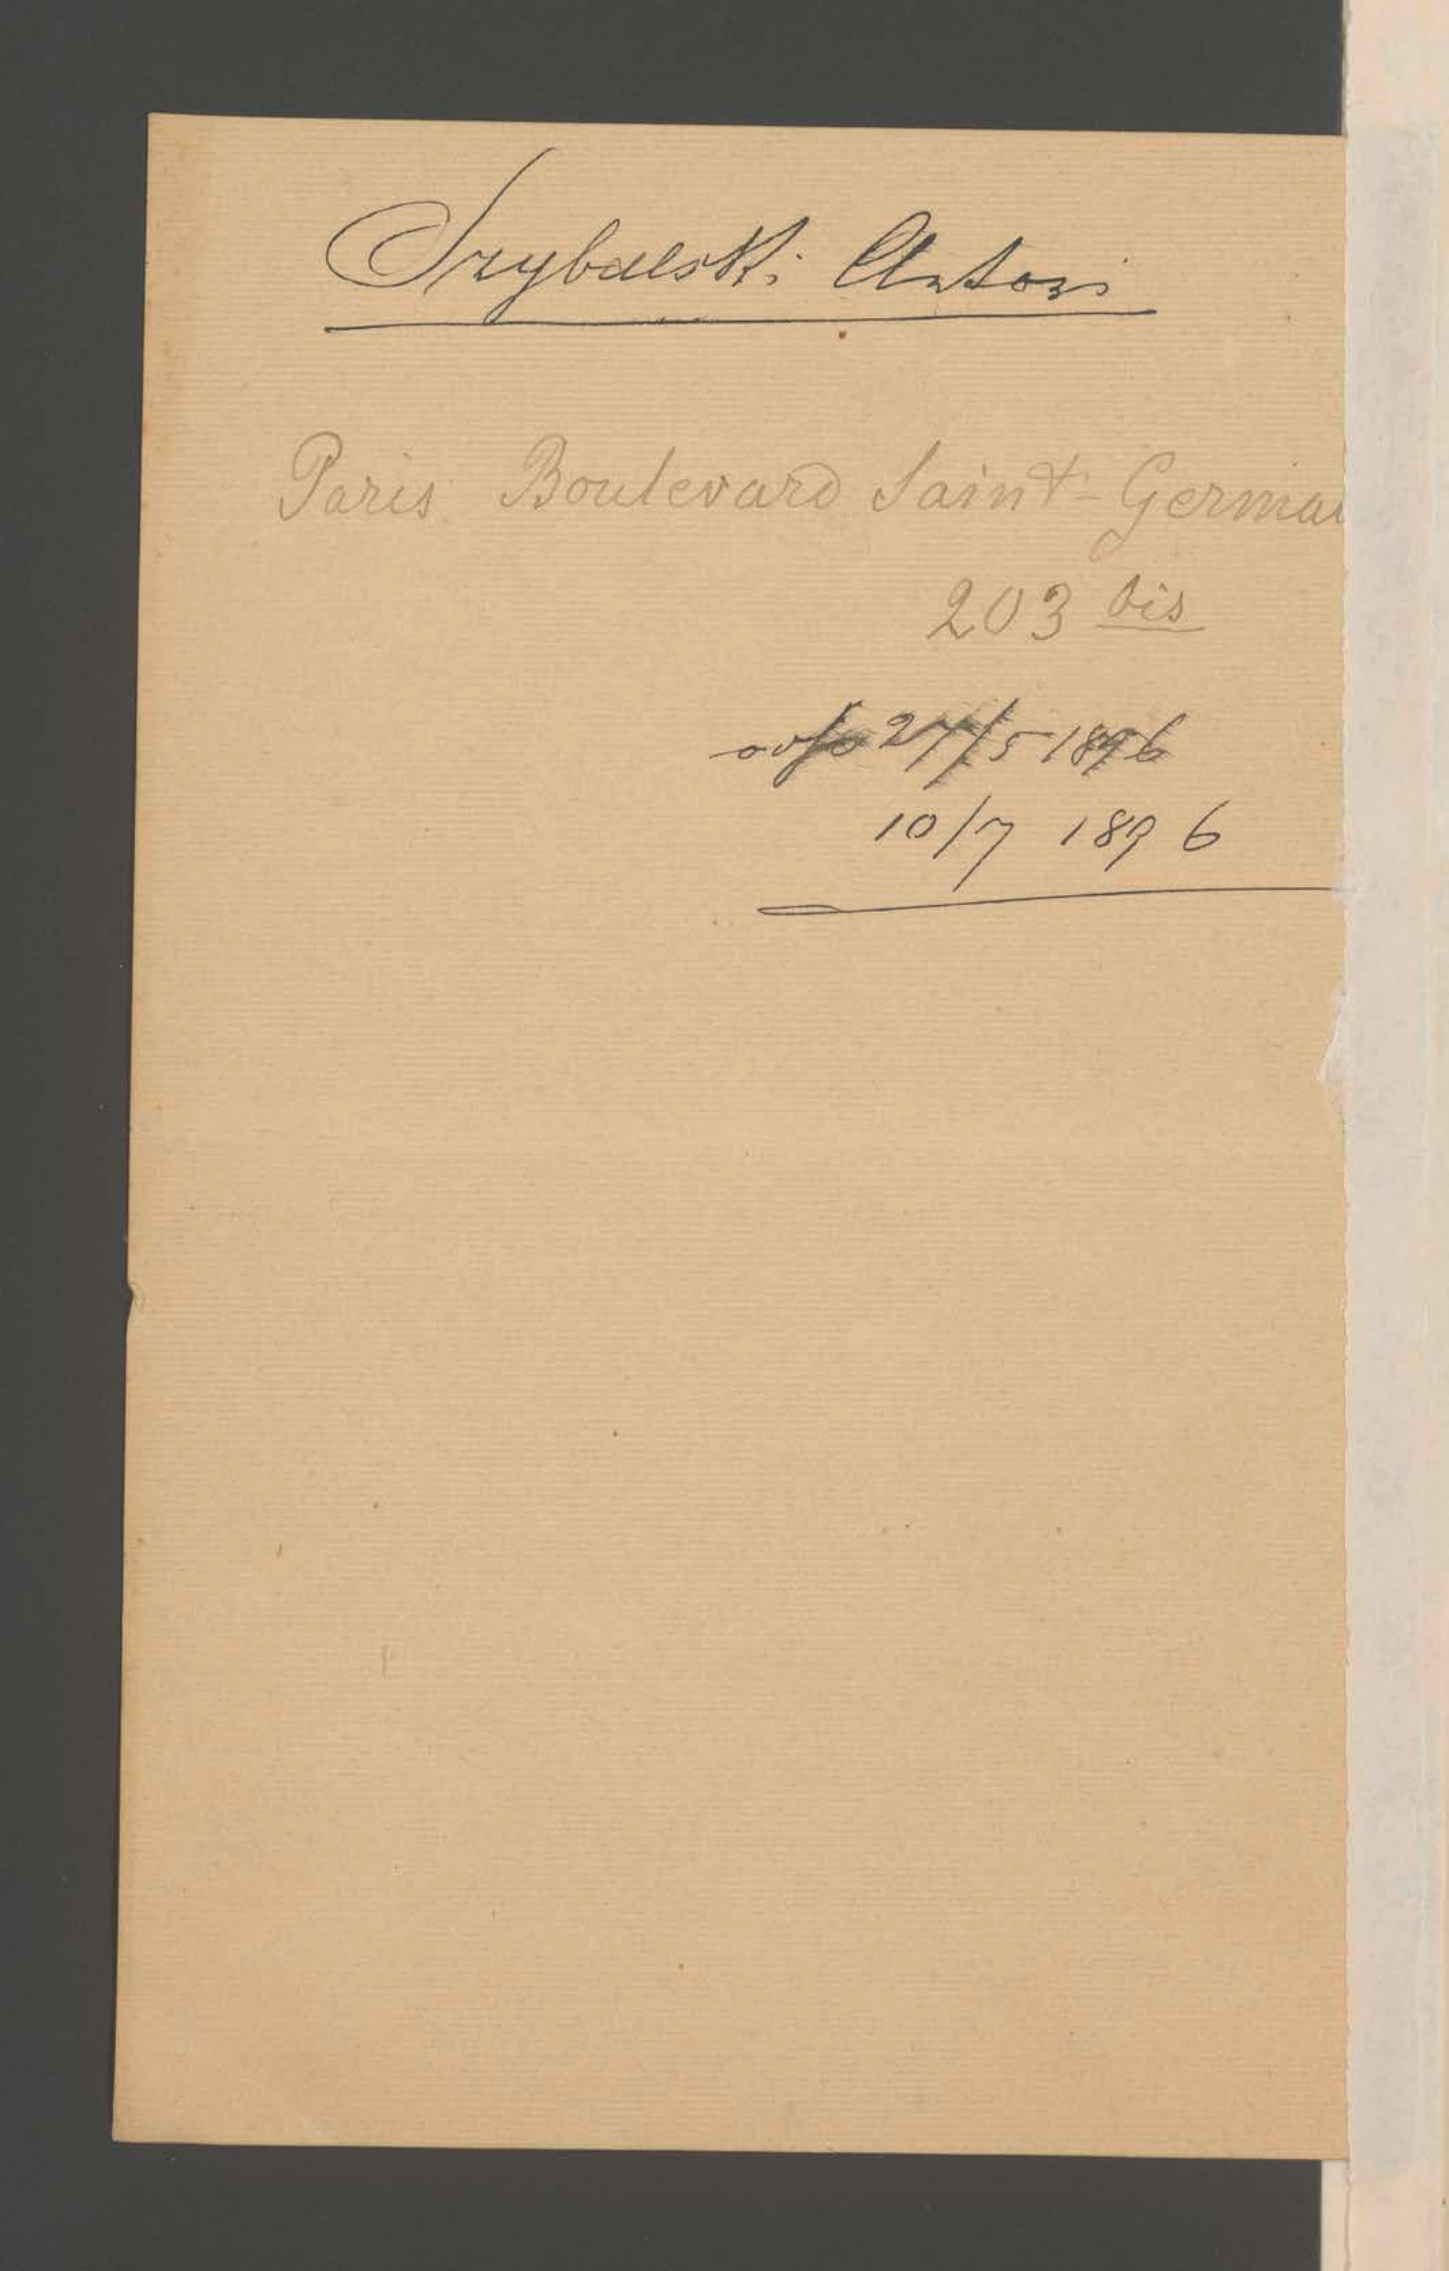 Szybalski Antoni
Paris Boulevard Saint-Germai
203 bis
27/5 1896
10/7 1896